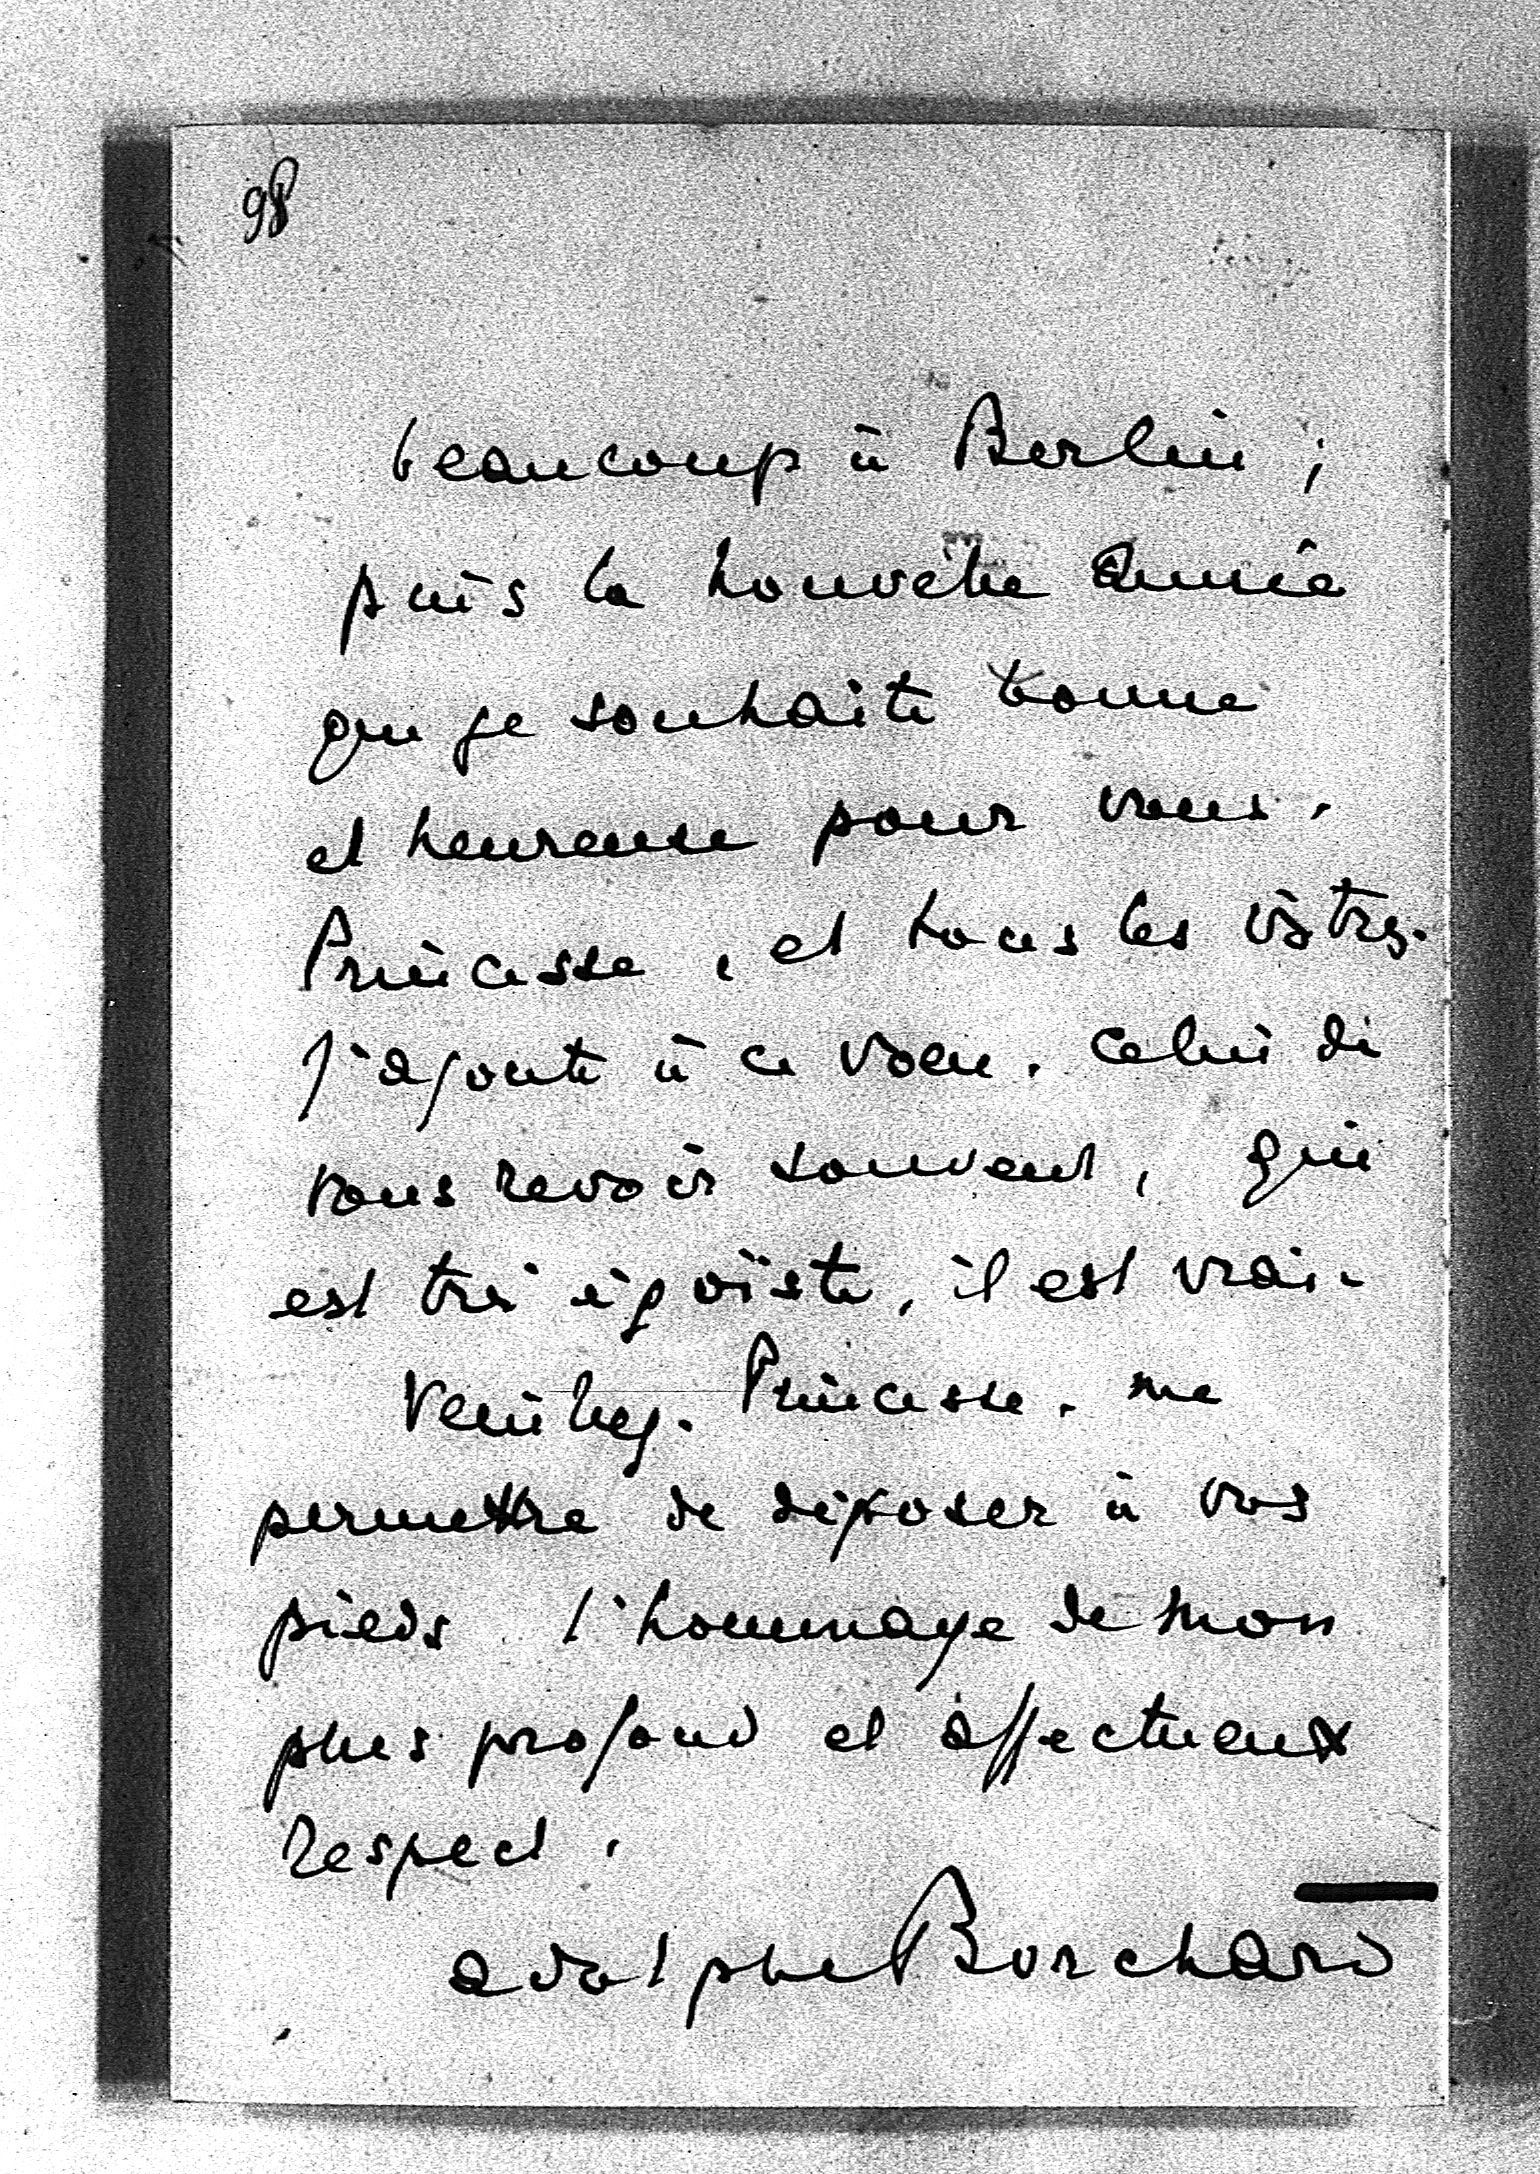 98
beaucoup à Berlin ;
puis la nouvelle année
que je souhaite bonne
et heureuse pour vous,
Princesse, et tous les vôtres.
J'ajoute à ce voeu, celui de
vous revoir souvent, qui
est très égoïste, il est vrai.
Veuillez, Princesse, me
permettre de déposer à vos
pieds l'hommage de mon
plus profond et affectueux
respect.
Adolphe Borchard